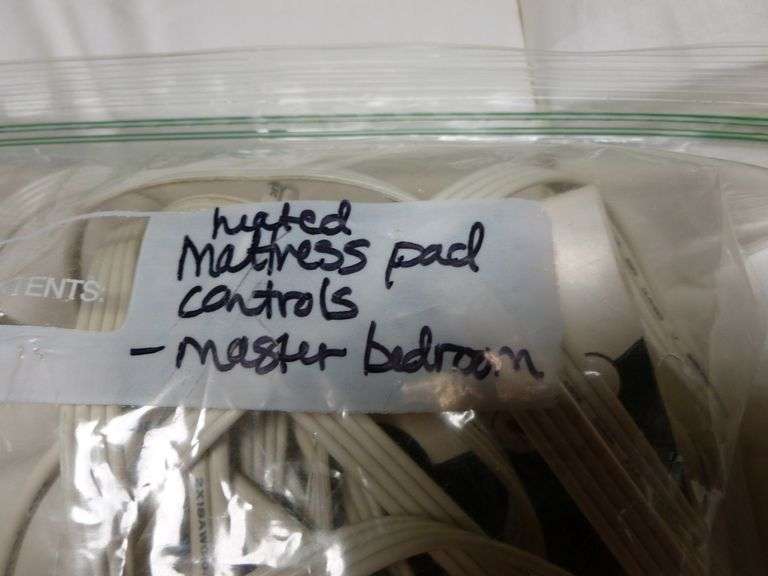 heated
mattress pad
controls
TENTS:
- master bedroom
2X18AW